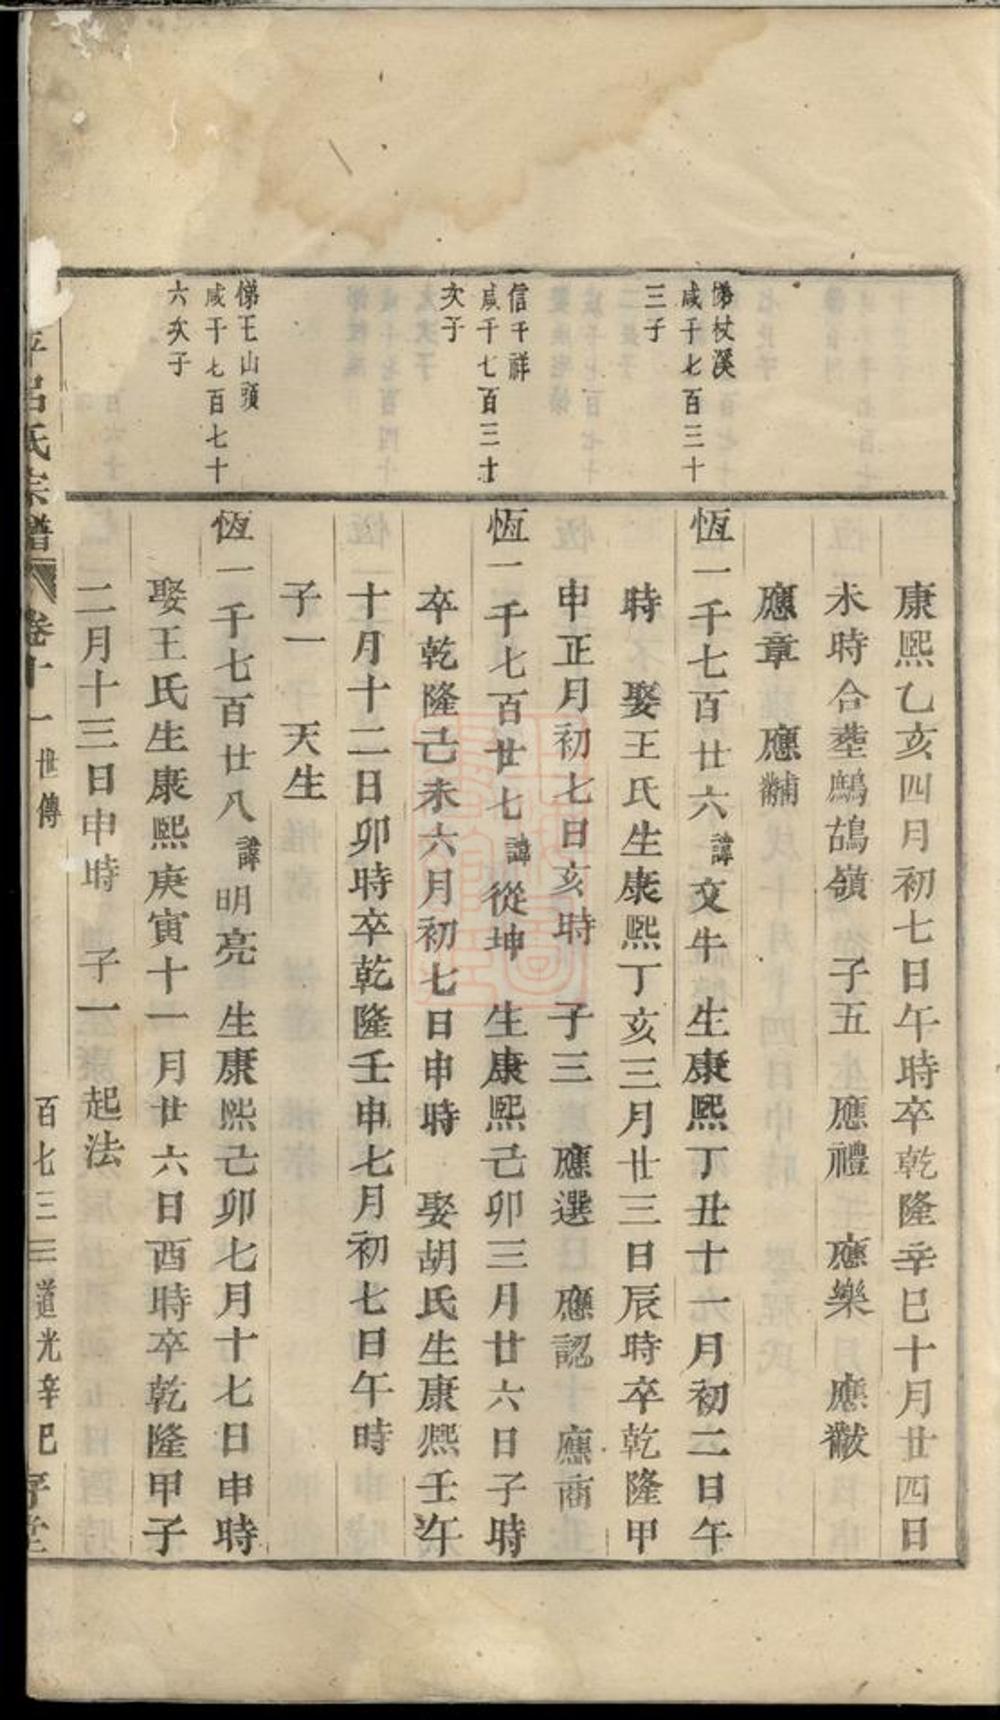 悌杖溪
咸千七百三十
三子
信千祥
咸千七百三十
次子
悌王山頭
咸千七百七十
六次子
康熙乙亥四月初七日午時卒乾隆辛巳十月廿四日
未時合塟鷓鴣嶺 子五 應禮 應樂 應黻
應章 應黼
恆一千七百廿六諱文牛 生康熙丁丑十一月初二日午
時 娶王氏生康熙丁亥三月廿三日辰時卒乾隆甲
申正月初七日亥時 子三 應選 應認 應商
恆一千七百廿七諱從坤 生康熙己卯三月廿六日子時
卒乾隆己未六月初七日申時 娶胡氏生康熙壬午
十月十二日卯時卒乾隆壬申七月初七日午時
子一 天生
恆一千七百廿八諱明亮 生康熙己卯七月十七日申時
娶王氏生康熙庚寅十一月廿六日酉時卒乾隆甲子
二月十三日申時 子一 起法
呂氏宗譜 卷十一 世傳 百七三三 道光辛巳